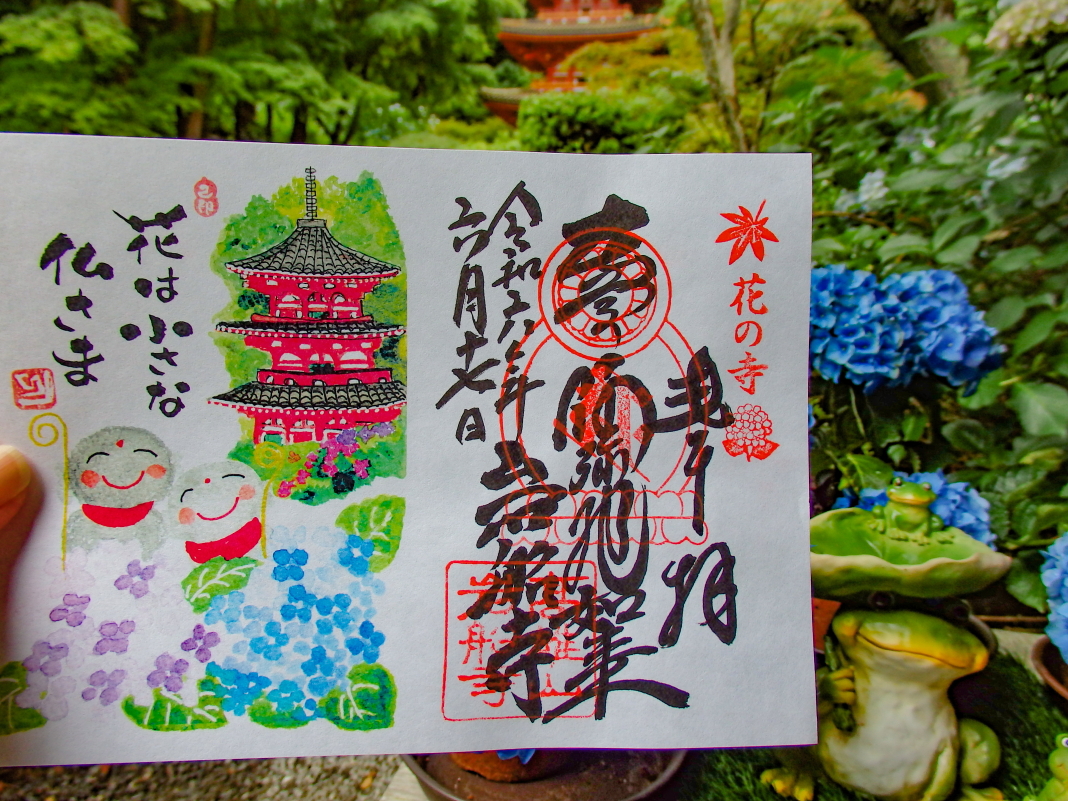 花の寺
奉拝
阿弥陀如来
令和六年
六月十七日
岩船寺
高雄山
岩船寺
花は小さな
仏さま